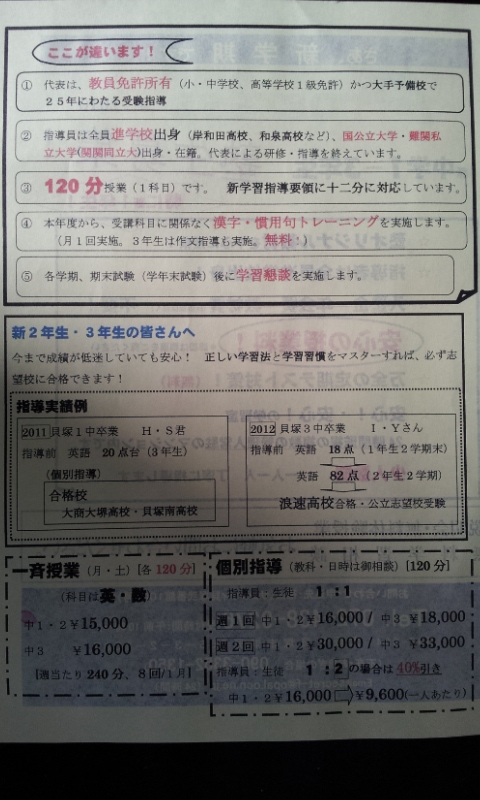 ここが違います！
① 代表は、教員免許所有（小・中学校、高等学校１級免許）かつ大手予備校で
２５年にわたる受験指導
② 指導員は全員進学校出身（岸和田高校、和泉高校など）、国公立大学・難関私
立大学(関関同立大)出身・在籍。代表による研修・指導を終えています。
③ 120分授業（１科目）です。 新学習指導要領に十二分に対応しています。
④ 本年度から、受講科目に関係なく漢字・慣用句トレーニングを実施します。
（月１回実施。３年生は作文指導も実施。無料！）
⑤ 各学期、期末試験（学年末試験）後に学習懇談を実施します。
新２年生・３年生の皆さんへ
今まで成績が低迷していても安心！ 正しい学習法と学習習慣をマスターすれば、必ず志
望校に合格できます！
指導実績例
2011 貝塚１中卒業 Ｈ・Ｓ君
指導前 英語 20点台（３年生）
（個別指導）
合格校
大商大堺高校・貝塚南高校
2012 貝塚３中卒業 Ｉ・Ｙさん
指導前 英語 18点（１年生２学期末）
英語 82点（２年生２学期）
浪速高校合格・公立志望校受験
一斉授業（月・土）[各120分]
（科目は英・数）
中１・２￥15,000
中３ ￥16,000
［週当たり240分、８回/１月］
個別指導（教科・日時は御相談）[120分]
指導員：生徒 １：１
週１回 中１・２￥16,000 / 中３￥18,000
週２回 中１・２￥30,000 / 中３￥33,000
指導員：生徒 １：２の場合は40%引き
中１・２￥16,000⇨￥9,600(一人あたり)